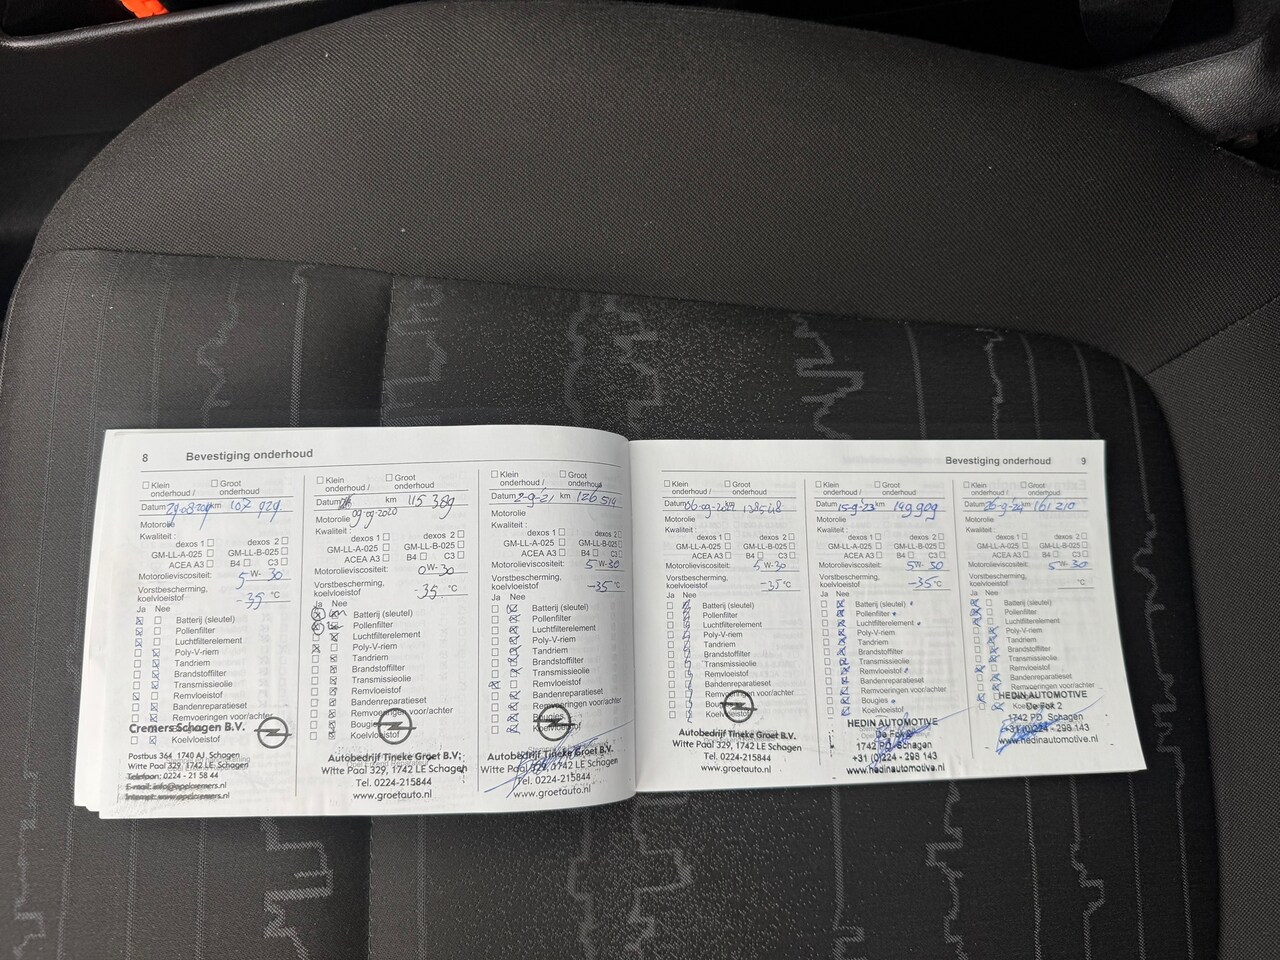 8 Bevestiging onderhoud
Klein onderhoud / Groot onderhoud
Datum km 107 929
Motorolie
Kwaliteit:
dexos 1 dexos 2
GM-LL-A-025 GM-LL-B-025
ACEA A3 B4 C3
Motorolieviscositeit: 5W-30
Vorstbescherming, koelvloeistof -35 °C
Ja Nee
Batterij (sleutel)
Pollenfilter
Luchtfilterelement
Poly-V-riem
Tandriem
Brandstoffilter
Transmissieolie
Remvloeistof
Bandenreparatieset
Remvoeringen voor/achter
Koelvloeistof
Cremers Schagen B.V.
Postbus 364, 1740 AJ, Schagen
Witte Paal 329, 1742 LE Schagen
Telefoon: 0224 - 21 58 44
Klein onderhoud / Groot onderhoud
Datum 09-09-2020 km 115 369
Motorolie
Kwaliteit:
dexos 1 dexos 2
GM-LL-A-025 GM-LL-B-025
ACEA A3 B4 C3
Motorolieviscositeit: 0W-30
Vorstbescherming, koelvloeistof -35 °C
Ja Nee
Batterij (sleutel)
Pollenfilter
Luchtfilterelement
Poly-V-riem
Tandriem
Brandstoffilter
Transmissieolie
Remvloeistof
Bandenreparatieset
Remvoeringen voor/achter
Bougies
Koelvloeistof
Autobedrijf Tineke Groet B.V.
Witte Paal 329, 1742 LE Schagen
Tel. 0224-215844
www.groetauto.nl
Klein onderhoud / Groot onderhoud
Datum 2-9-21 km 126 514
Motorolie
Kwaliteit:
dexos 1 dexos 2
GM-LL-A-025 GM-LL-B-025
ACEA A3 B4 C3
Motorolieviscositeit: 5W-30
Vorstbescherming, koelvloeistof -35 °C
Ja Nee
Batterij (sleutel)
Pollenfilter
Luchtfilterelement
Poly-V-riem
Tandriem
Brandstoffilter
Transmissieolie
Remvloeistof
Bandenreparatieset
Remvoeringen voor/achter
Bougies
Koelvloeistof
Autobedrijf Tineke Groet B.V.
Witte Paal 329, 1742 LE Schagen
Tel. 0224-215844
www.groetauto.nl
Bevestiging onderhoud 9
Klein onderhoud / Groot onderhoud
Datum 138548
Motorolie
Kwaliteit:
dexos 1 dexos 2
GM-LL-A-025 GM-LL-B-025
ACEA A3 B4 C3
Motorolieviscositeit: 5W-30
Vorstbescherming, koelvloeistof -35 °C
Ja Nee
Batterij (sleutel)
Pollenfilter
Luchtfilterelement
Poly-V-riem
Tandriem
Brandstoffilter
Transmissieolie
Remvloeistof
Bandenreparatieset
Remvoeringen voor/achter
Bougies
Koelvloeistof
Autobedrijf Tineke Groet B.V.
Witte Paal 329, 1742 LE Schagen
Tel. 0224-215844
www.groetauto.nl
Klein onderhoud / Groot onderhoud
Datum 15-9-23 km 149909
Motorolie
Kwaliteit:
dexos 1 dexos 2
GM-LL-A-025 GM-LL-B-025
ACEA A3 B4 C3
Motorolieviscositeit: 5W-30
Vorstbescherming, koelvloeistof -35 °C
Ja Nee
Batterij (sleutel)
Pollenfilter
Luchtfilterelement
Poly-V-riem
Tandriem
Brandstoffilter
Transmissieolie
Remvloeistof
Bandenreparatieset
Remvoeringen voor/achter
Bougies
Koelvloeistof
HEDIN AUTOMOTIVE
De Fok 2
1742 PD Schagen
+31 (0)224 - 298 143
www.hedinautomotive.nl
Klein onderhoud / Groot onderhoud
Datum 26-9-24 km 161 210
Motorolie
Kwaliteit:
dexos 1 dexos 2
GM-LL-A-025 GM-LL-B-025
ACEA A3 B4 C3
Motorolieviscositeit: 5W-30
Vorstbescherming, koelvloeistof °C
Ja Nee
Batterij (sleutel)
Pollenfilter
Luchtfilterelement
Poly-V-riem
Tandriem
Brandstoffilter
Transmissieolie
Remvloeistof
Bandenreparatieset
Remvoeringen voor/achter
HEDIN AUTOMOTIVE
De Fok 2
1742 PD Schagen
+31 (0)224 - 298 143
www.hedinautomotive.nl